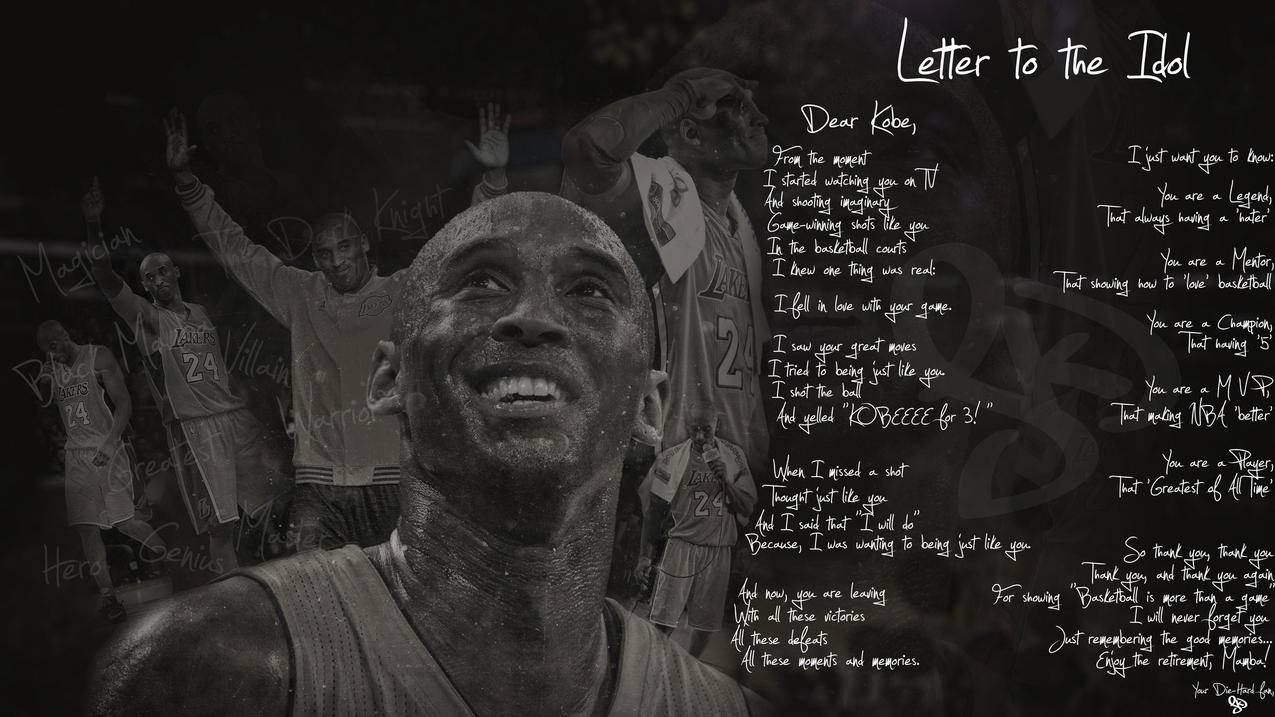 Letter to the Idol
Dear Kobe,
From the moment
I started watching you on TV
And shooting imaginary
Game-winning shots like you
In the basketball courts
I knew one thing was real:
I fell in love with your game.
I saw your great moves
I tried to being just like you
I shot the ball
And yelled "KOBEEEE for 3! "
When I missed a shot
Thought just like you
And I said that "I will do"
Because, I was wanting to being just like you
And now, you are leaving
With all these victories
All these defeats
All these moments and memories.
I just want you to know:
You are a Legend,
That always having a 'hater'
You are a Mentor,
That showing how to 'love' basketball
You are a Champion,
That having '5'
You are a M V P,
That making NBA 'better'
You are a Player,
That 'Greatest of All Time'
So thank you, thank you
Thank you, and thank you again
For showing "Basketball is more than a game
I will never forget you
Just remembering the good memories...
Enjoy the retirement, Mamba!
Your Die-Hard fan,
Magician
The Dark Knight
Black Mamba
Villain
Warrior
Greatest
Hero
Genius
Master
LAKERS
24
LAKERS
24
LAKERS
24
LAKERS
24